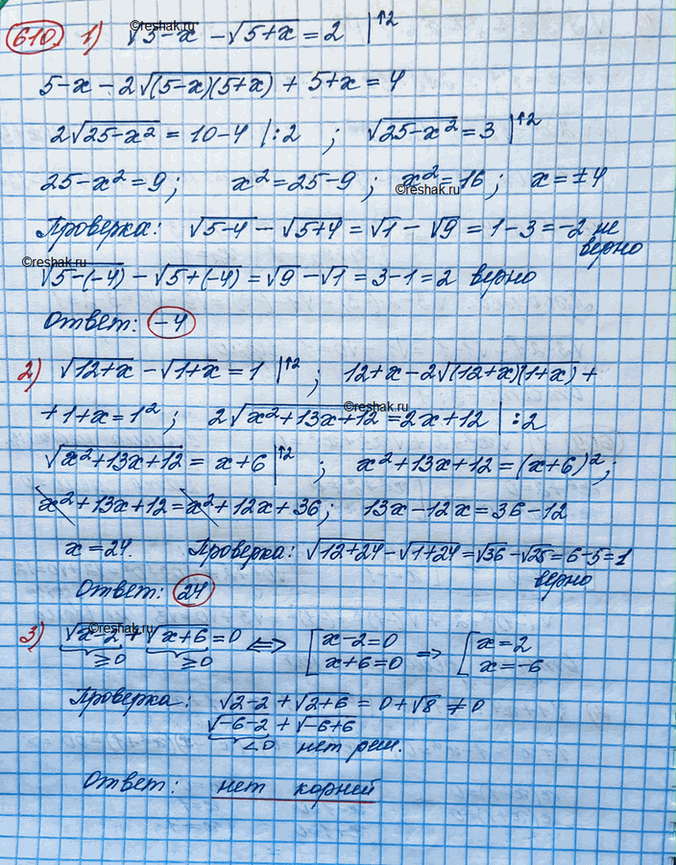 ©reshak.ru
610. 1) √5-x - √5+x = 2 |↑2
5-x - 2√(5-x)(5+x) + 5+x = 4
2√25-x² = 10-4 |:2 ; √25-x² = 3 |↑2
25-x² = 9; x² = 25-9 ; x² = 16; x = ±4
©reshak.ru
Проверка: √5-4 - √5+4 = √1 - √9 = 1-3 = -2 не
верно
©reshak.ru
√5-(-4) - √5+(-4) = √9 - √1 = 3-1 = 2 верно
Ответ: -4
2) √12+x - √1+x = 1 |↑2 ; 12+x-2√(12+x)(1+x) +
+1+x = 1² ; 2√x²+13x+12 = 2x+12 |:2
©reshak.ru
√x²+13x+12 = x+6 |↑2 ; x²+13x+12 = (x+6)²;
x²+13x+12 = x²+12x+36; 13x-12x = 36-12
x = 24. Проверка: √12+24 - √1+24 = √36 - √25 = 6-5 = 1
верно
Ответ: 24
©reshak.ru
3) √x-2 + √x+6 = 0 <=> [ x-2=0 => [ x=2
≥0 ≥0 x+6=0 x=-6
Проверка: √2-2 + √2+6 = 0+√8 ≠ 0
√-6-2 + √-6+6
<0 нет реш.
Ответ: нет корней